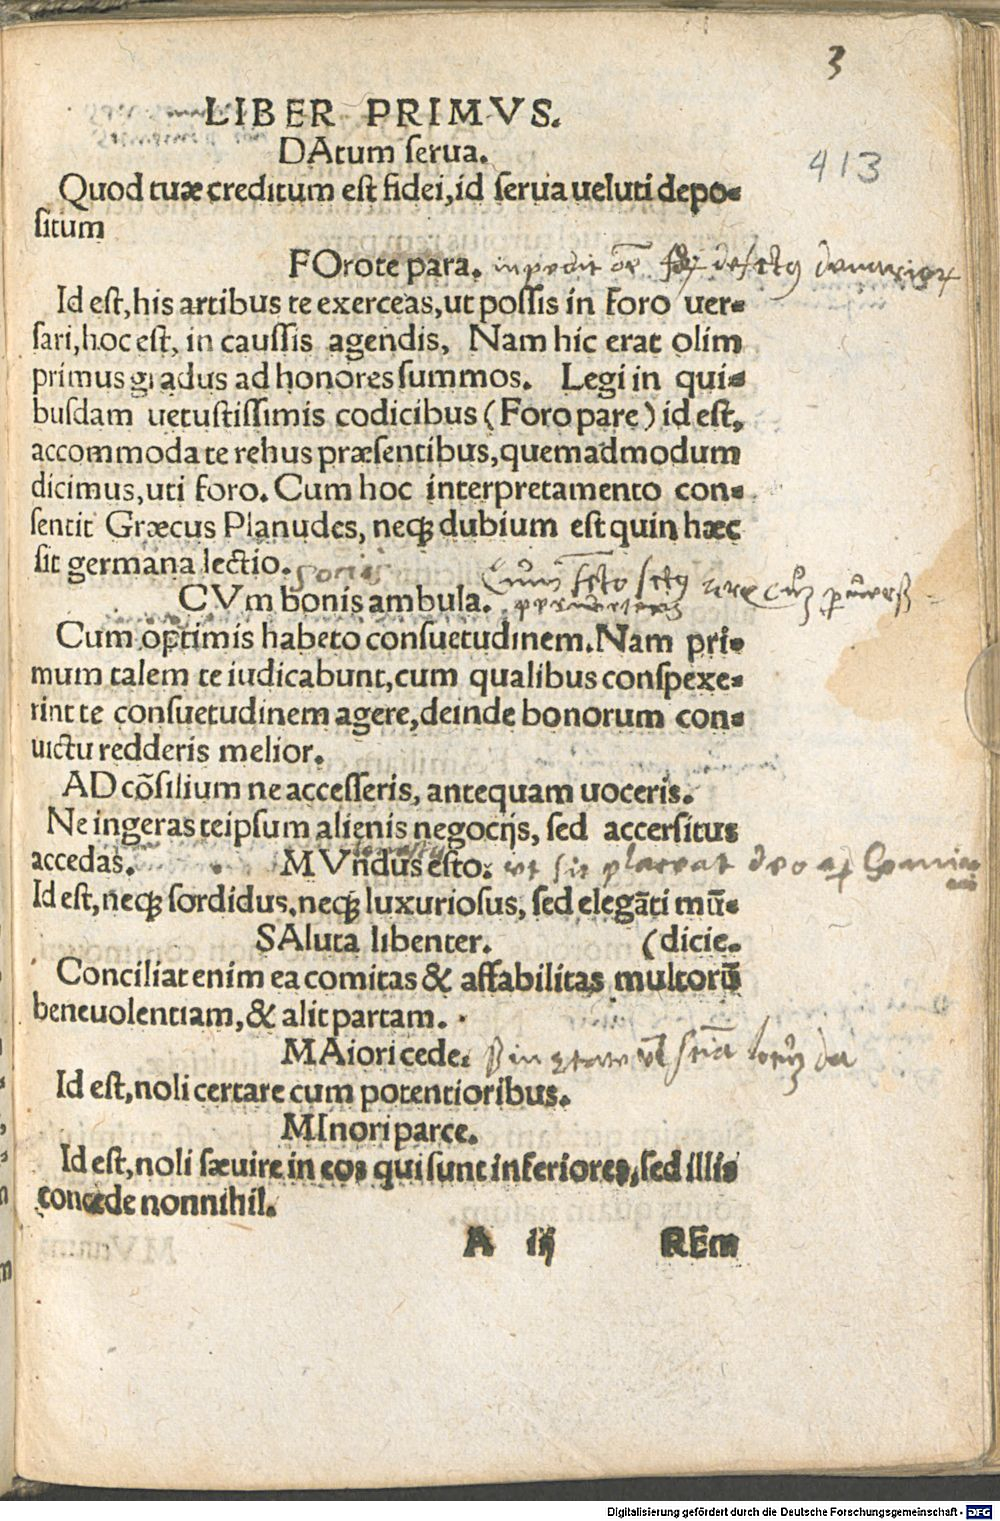 3
LIBER PRIMVS.
DAtum serua.
413
Quod tuæ creditum est fidei, id serua ueluti depo-
situm
FOro te para. inpedit
Id est, his artibus te exerceas, ut possis in foro uer-
sari, hoc est, in caussis agendis, Nam hic erat olim
primus gradus ad honores summos. Legi in qui-
busdam uetustissimis codicibus (Foro pare) id est,
accommoda te rebus præsentibus, quemadmodum
dicimus, uti foro. Cum hoc interpretamento con-
sentit Græcus Planudes, neqꝫ dubium est quin hæc
sit germana lectio. sociis
CVm bonis ambula.
Cum optimis habeto consuetudinem. Nam pri-
mum talem te iudicabunt, cum qualibus conspexe-
rint te consuetudinem agere, deinde bonorum con-
uictu redderis melior.
AD cõsilium ne accesseris, antequam uoceris.
Ne ingeras teipsum alienis negocijs, sed accersitus
accedas. MVndus esto. ut sit placeat deo
Id est, neqꝫ sordidus, neqꝫ luxuriosus, sed elegãti mũ-
SAluta libenter. (dicie.
Conciliat enim ea comitas & affabilitas multorũ
beneuolentiam, & alit partam.
MAiori cede.
Id est, noli certare cum potentioribus.
MInori parce.
Id est, noli sæuire in eos qui sunt inferiores, sed illis
concede nonnihil.
A iij REm
Digitalisierung gefördert durch die Deutsche Forschungsgemeinschaft - DFG